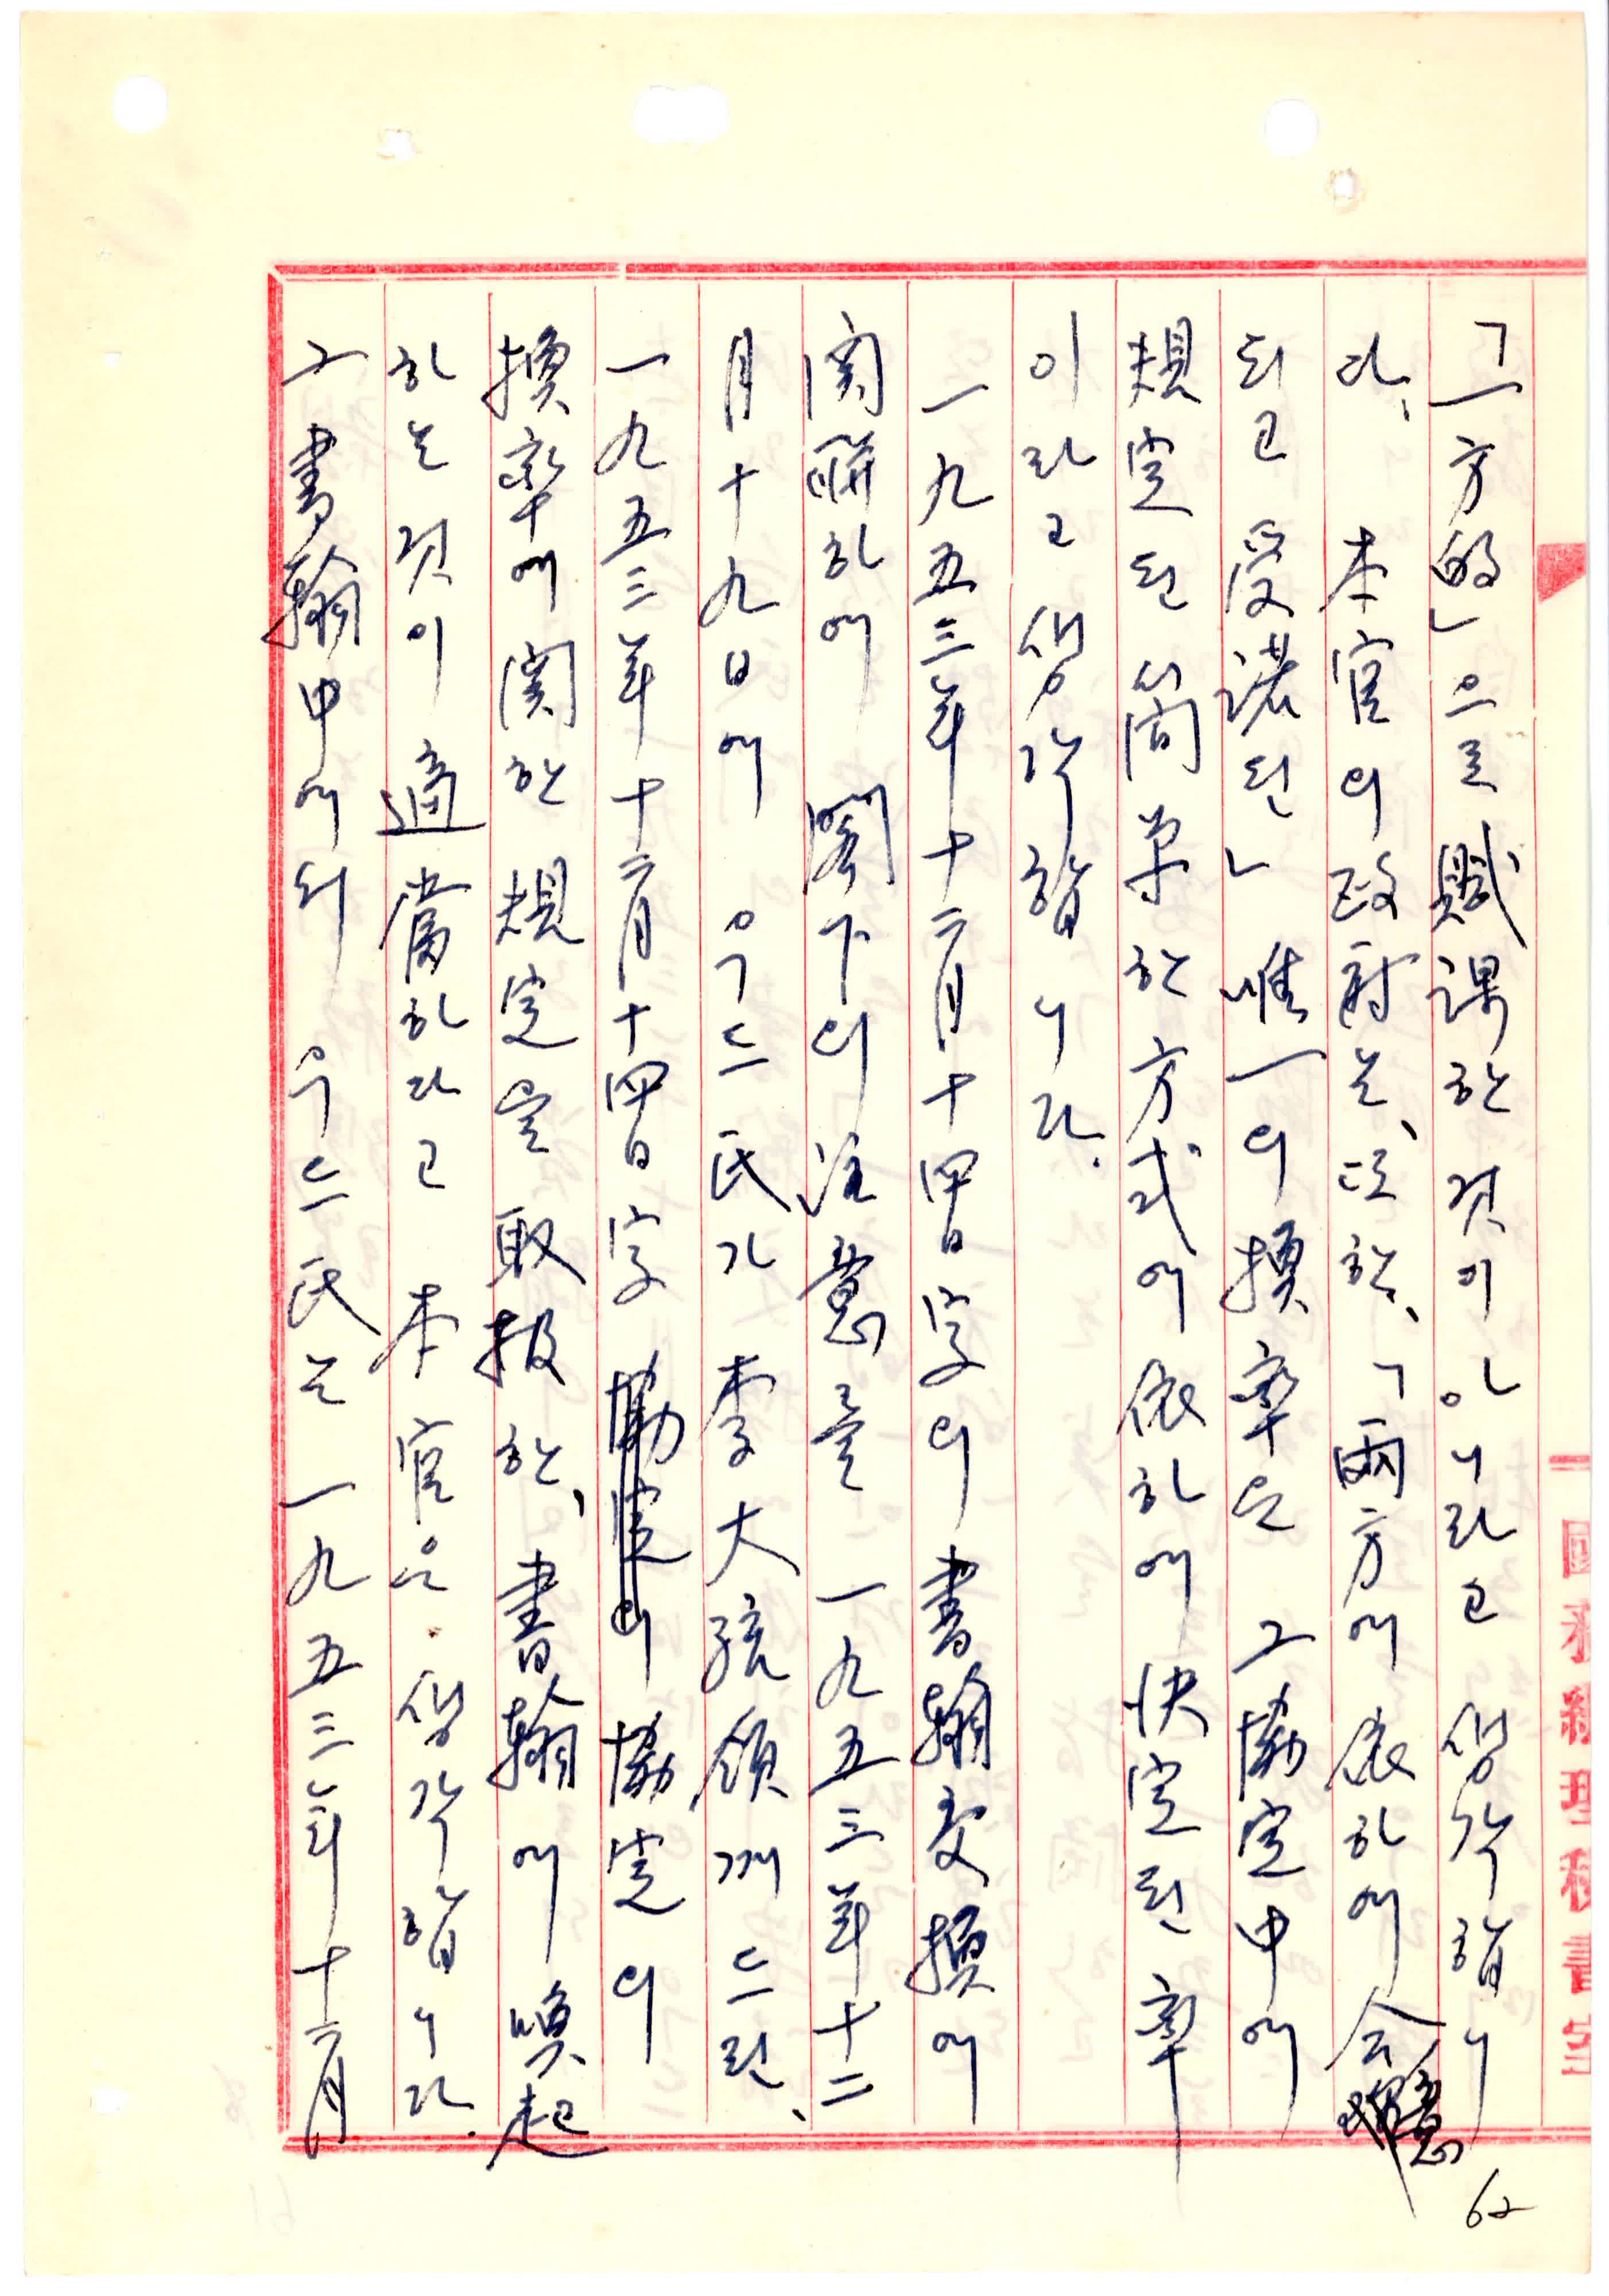 「一方的」으로 賦課한 것이 아니라고 생각합니
다、 本官의 政府는、또한、「兩方에 依하여 合意
되고 受諾된」 唯一의 換率은 그 協定中에
規定된 簡單한 方式에 依하여 決定된 率
이라고 생각합니다.
一九五三年十二月十四日字의 書翰交換에
関聯하여 閣下의 注意를 一九五三年十二
月十九日에 우드氏가 李大統領께 드린、
一九五三年十二月十四日字 協定의
換率에 関한 規定을 取扱한、書翰에 喚起
하는 것이 適當하다고 本官은 생각합니다.
그 書翰中에서 우드氏는 一九五三年十二月
62
國務總理秘書室